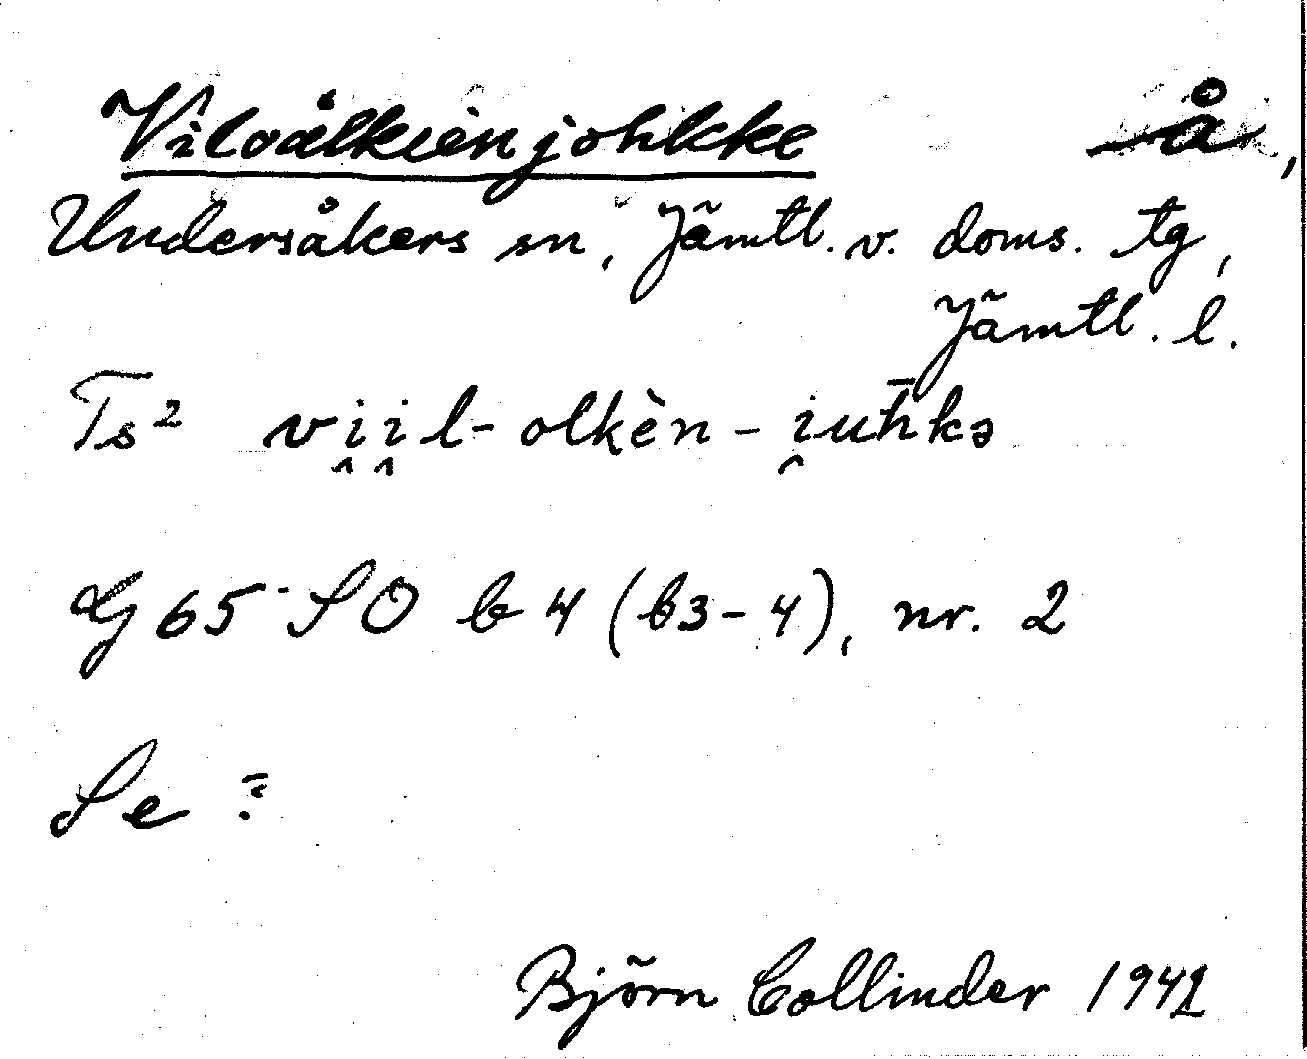 Vilvålkienjohkke å,
Undersåkers sn, Jämtl. v. doms. tg,
Jämtl. l.
Ts² vi̯i̯l-olkèn-i̯uh̄kə
G 65 SO b 4 (b3-4), nr. 2
Se :
Björn Collinder 1942